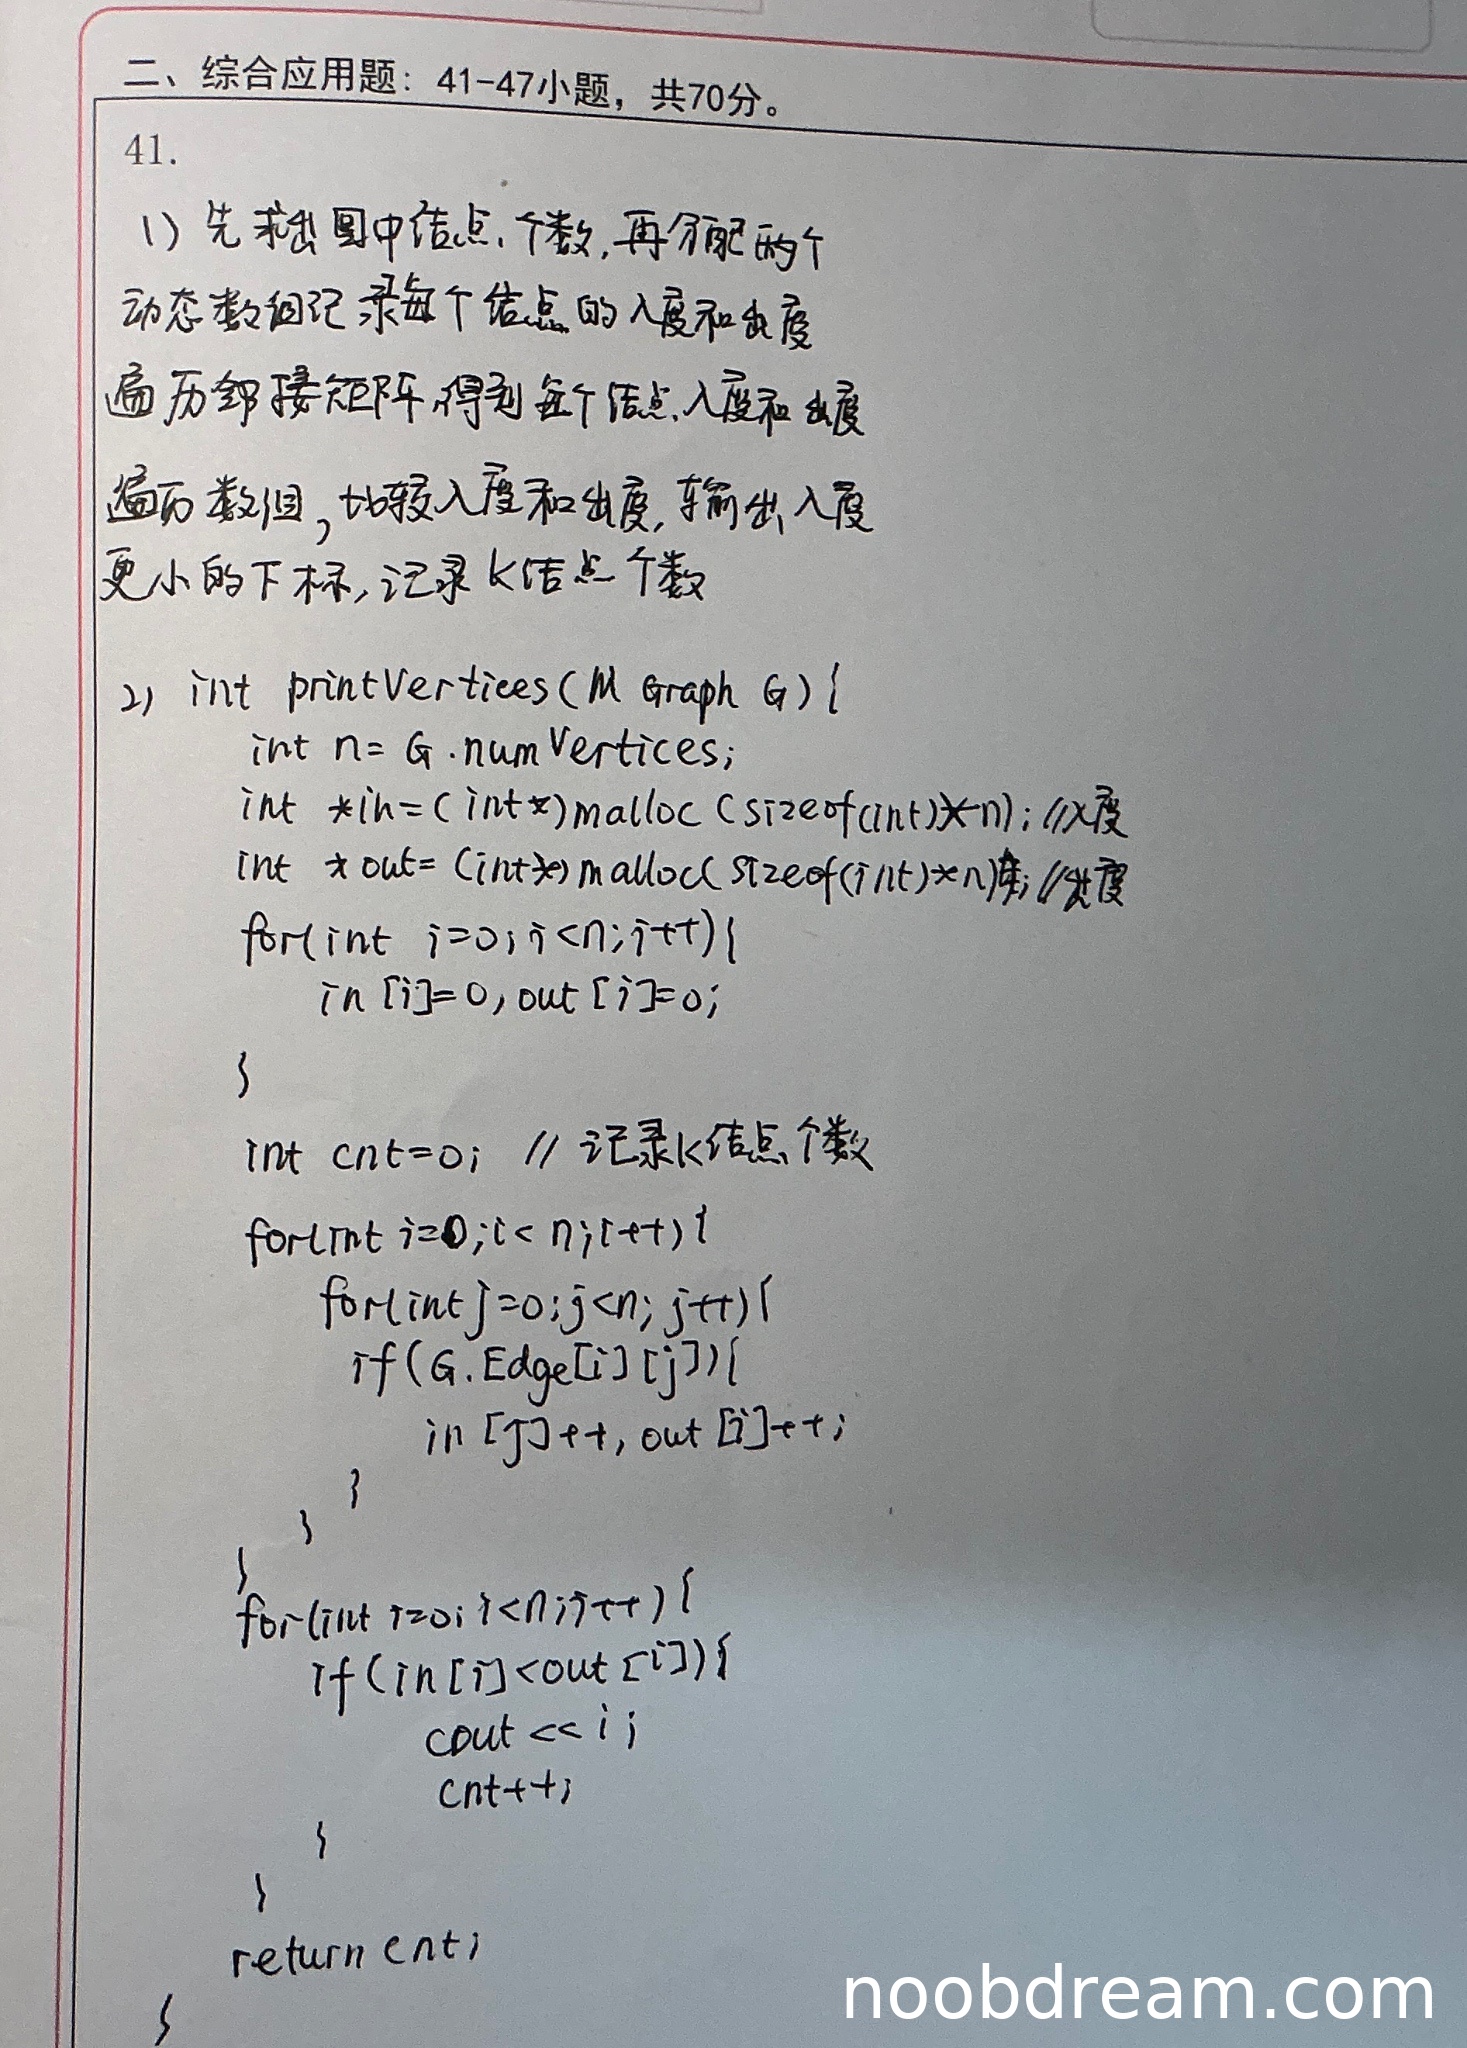 二、综合应用题：41-47小题，共70分。
41.
1) 先求出图中结点个数，再分配两个
动态数组记录每个结点的入度和出度
遍历邻接矩阵，得到每个结点入度和出度
遍历数组，比较入度和出度，输出入度
更小的下标，记录K结点个数
2) int printVertices(MGraph G){
int n= G.numVertices;
int *in=(int*)malloc(sizeof(int)*n); //入度
int *out=(int*)malloc(sizeof(int)*n); //出度
for(int i=0;i<n;i++){
in[i]=0,out[i]=0;
}
int cnt=0; // 记录K结点个数
for(int i=0;i<n;i++){
for(int j=0;j<n;j++){
if(G.Edge[i][j]){
in[j]++,out[i]++;
}
}
}
for(int i=0;i<n;i++){
if(in[i]<out[i]){
cout<<i;
cnt++;
}
}
return cnt;
}
noobdream.com